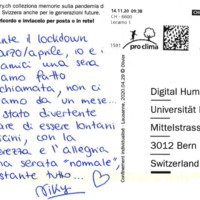 ry.ch colleziona memorie sulla pandemia d
Svizzera anche per le generazioni future.
fotocelo e invialocelo per posta o in rete!
nte il lockdown
arzo/aprile, io e i
amici una sera
amo fatto
chiamata, non ci
amo da un mese...
stato divertente
are di essere lontani
icini, con la
rezza e l'allegria
na serata "normale",
stante tutto...
Niky
14.11.20 09:38
CH - 6600
Locarno
1591
pro clima
Confinement Individualisé - Lausanne, 2020.04.29 © Olivier
Digital Hum
Universität
Mittelstrass
3012 Bern
Switzerland